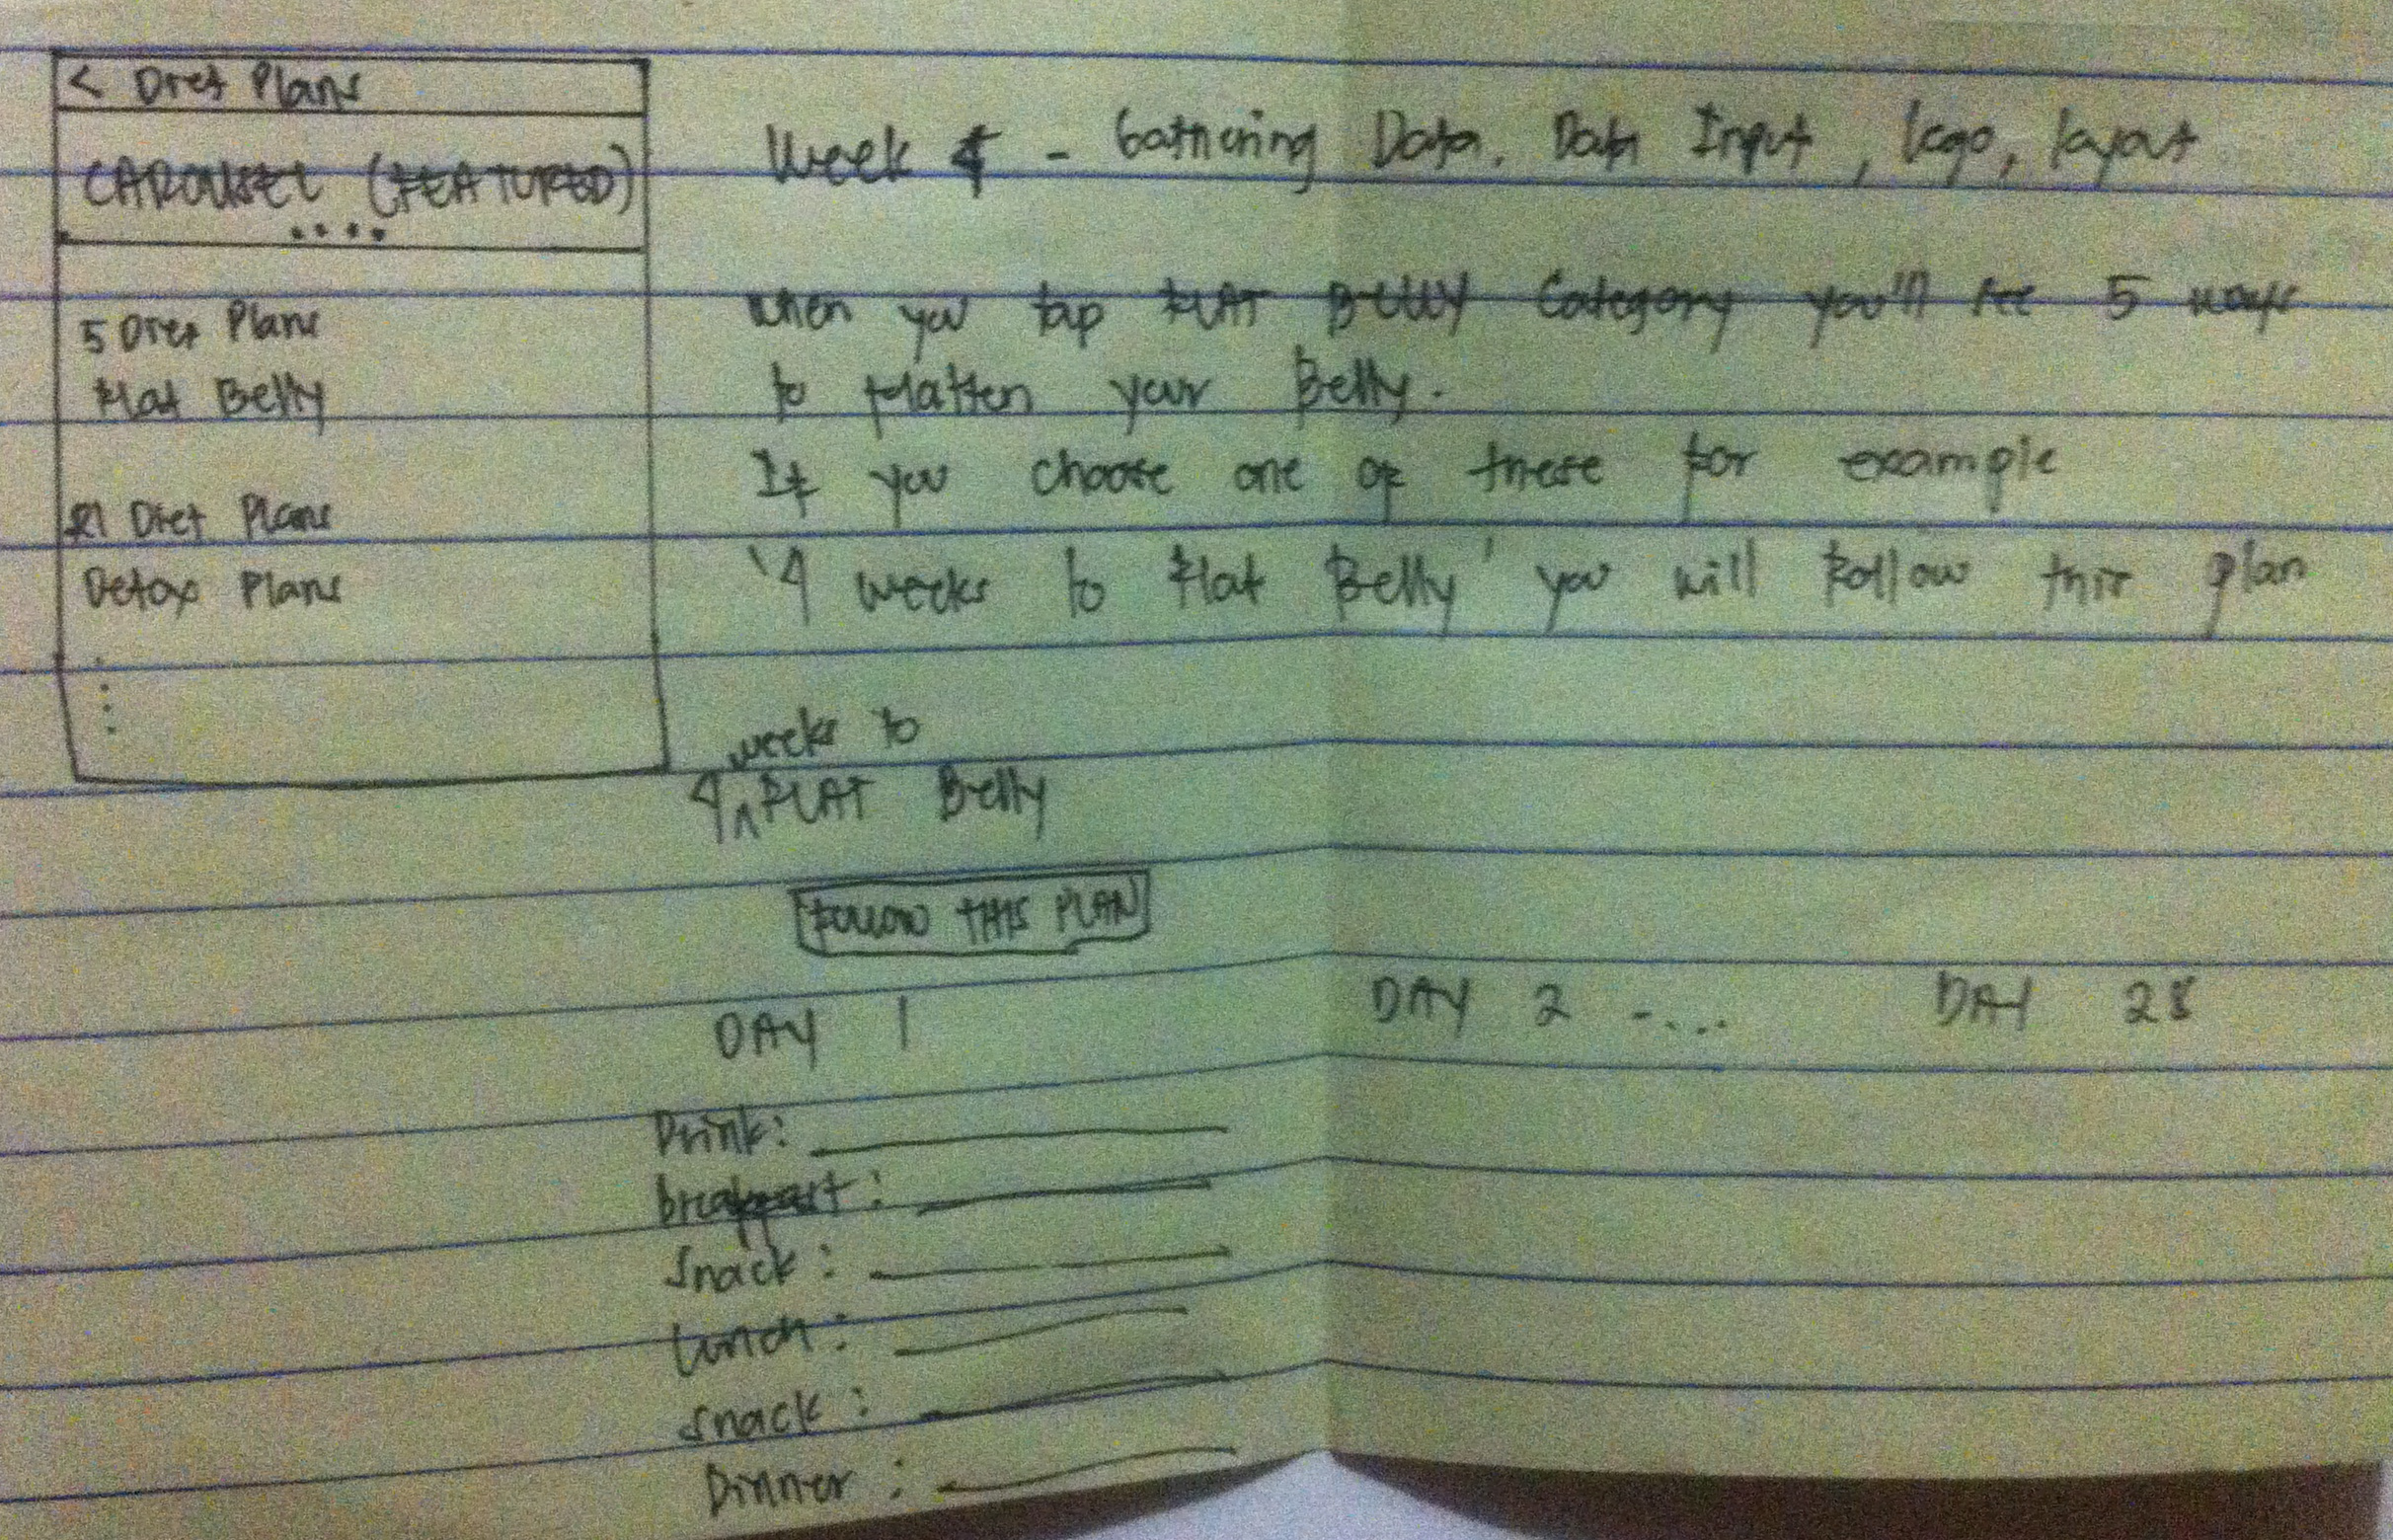 < Diet Plans
CAROUSEL (FEATURED)
....
5 Diet Plans
Flat Belly
21 Diet Plans
Detox Plans
Week - Gathering Data, Data Input, logo, layout
when you tap FLAT BELLY Category you'll see 5 ways
to flatten your Belly.
If you choose one of these for example
'4 weeks to flat Belly' you will follow this plan
weeks to
4 ^ FLAT Belly
FOLLOW THIS PLAN
DAY 1 DAY 2 -.... DAY 28
Drink:
breakfast:
Snack:
Lunch:
snack:
Dinner: